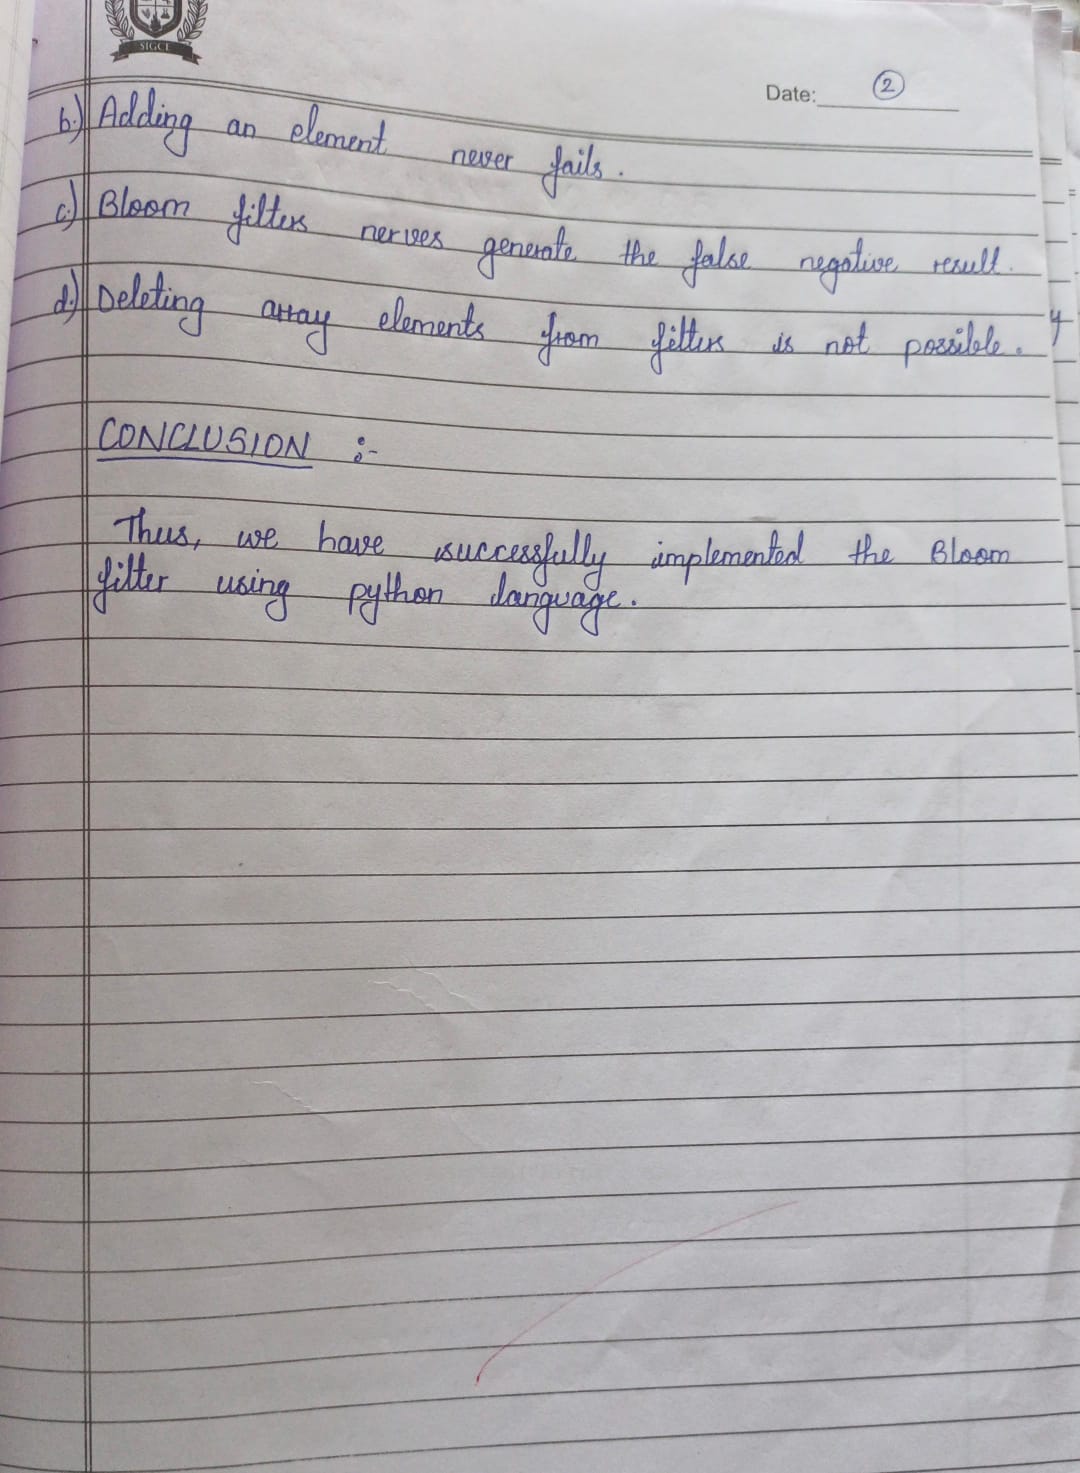 SIGCE
Date: 2
b.) Adding an element never fails.
c.) Bloom filters nerves generate the false negative result.
d.) Deleting array elements from filters is not possible.
y
CONCLUSION :-
Thus, we have successfully implemented the Bloom
filter using python language.